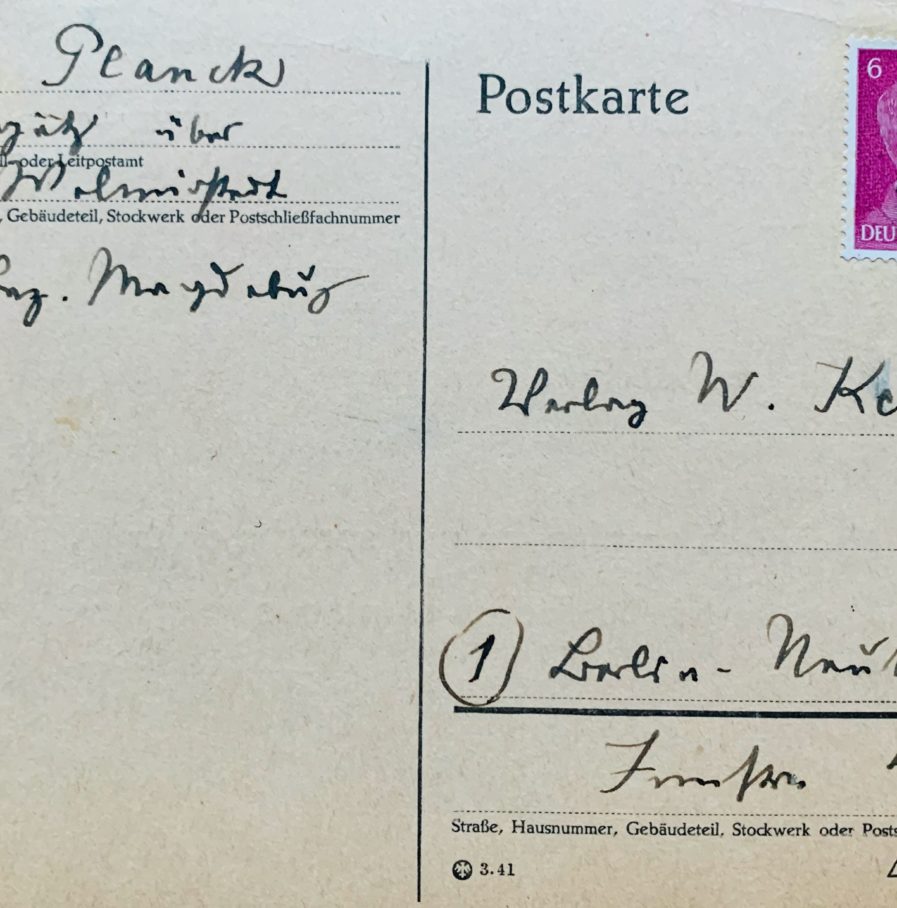 Planck
über
oder Leitpostamt
Wolmirstedt
Gebäudeteil, Stockwerk oder Postschließfachnummer
Bez. Magdeburg
Postkarte
6
DEU
Verlag W. Ke
1 Berlin-Neuk
Straße, Hausnummer, Gebäudeteil, Stockwerk oder Posts
3.41